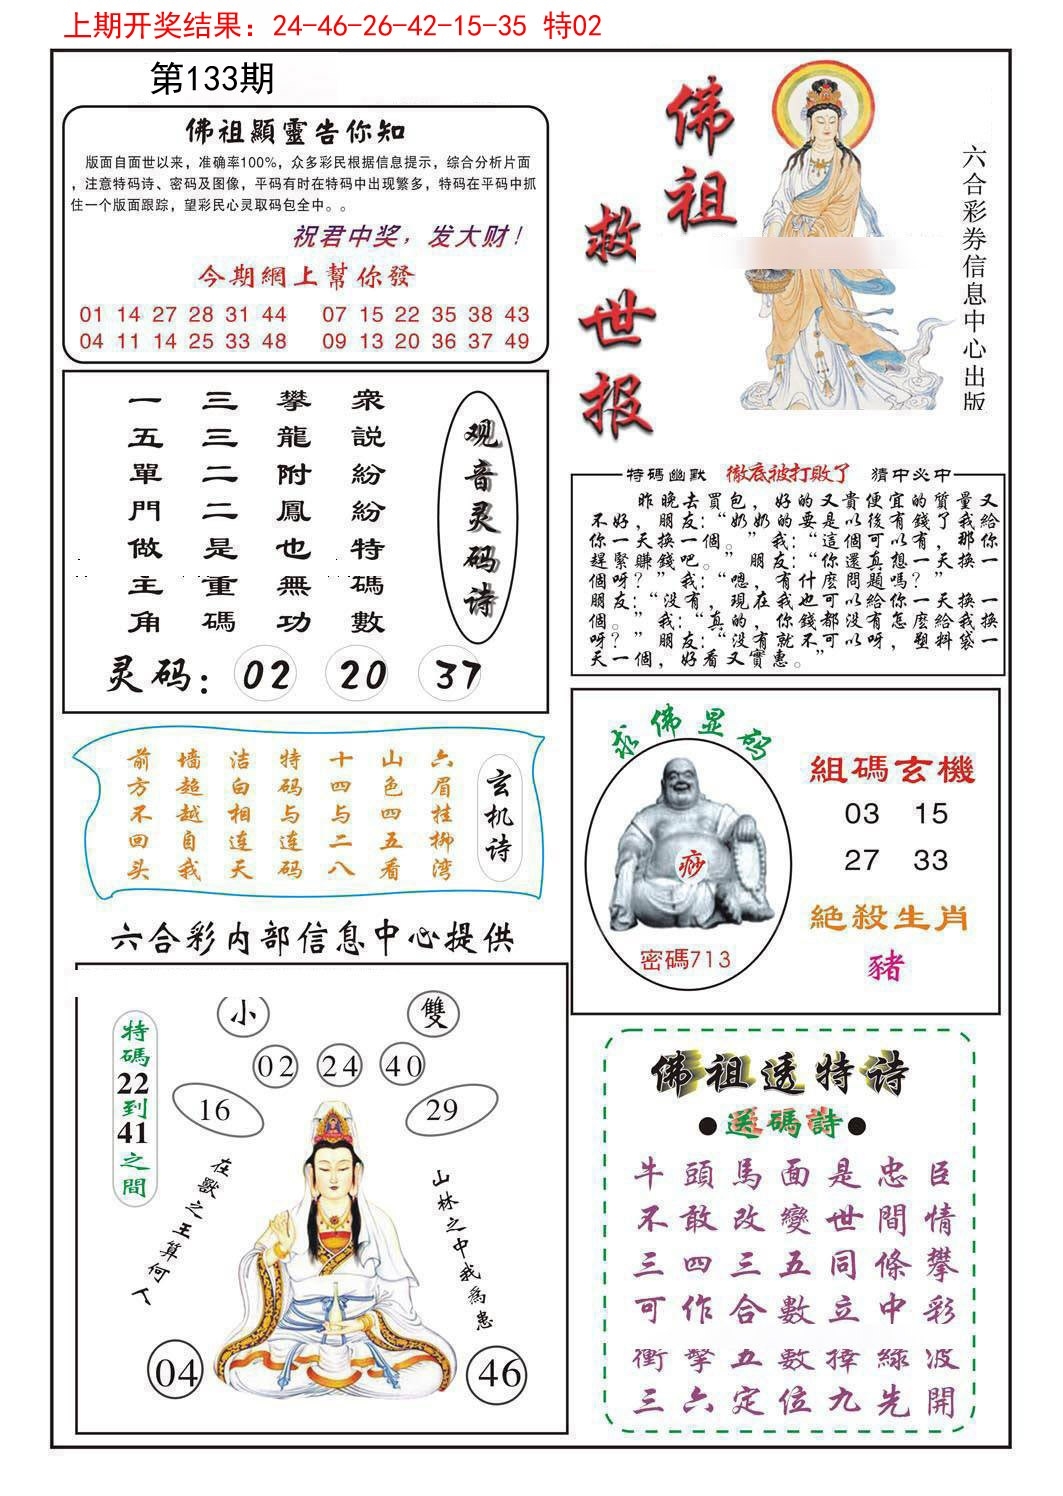 上期开奖结果：24-46-26-42-15-35 特02
第133期
佛祖顯靈告你知
版面自面世以来，准确率100%，众多彩民根据信息提示，综合分析片面
，注意特码诗、密码及图像，平码有时在特码中出现繁多，特码在平码中抓
住一个版面跟踪，望彩民心灵取码包全中。。
祝君中奖，发大财！
今期網上幫你發
01 14 27 28 31 44 07 15 22 35 38 43
04 11 14 25 33 48 09 13 20 36 37 49
佛祖
救世报
六合彩券信息中心出版
衆說紛紛特碼數
攀龍附鳳也無功
三三二二是重碼
一五單門做主角
观音灵码诗
灵码：02 20 37
特碼幽默 徹底被打敗了 猜中必中
昨晚去買包，好的又貴便宜的質量又
不好，朋友：“奶奶的要是以後有錢了我給
你一天换一個。”我：“這個可以有，那你
趕緊賺錢吧。”朋友：“你還真想一天换一
個呀？”我：“嗯，有什麽問題嗎？”
朋友：“没有，現在我也可以給你一天换一
個。”我：“真的，你錢都没有怎麽給我换
呀？”朋友：“没有就不可以呀，塑料袋一
天一個，好看又實惠。”
玄机诗
六眉挂柳湾
山色四五看
十四与二八
特码与连码
洁白相连天
墙超越自我
前方不回头
求佛显码
痧
密碼713
組碼玄機
03 15
27 33
絕殺生肖
豬
六合彩内部信息中心提供
小 雙
02 24 40
16 29
特碼22到41之間
在獸之王算何人
山林之中我為患
04 46
佛祖透特诗
●送碼詩●
牛頭馬面是忠臣
不敢改變世間情
三四三五同條攀
可作合數立中彩
衝擊五數撞綠波
三六定位九先開